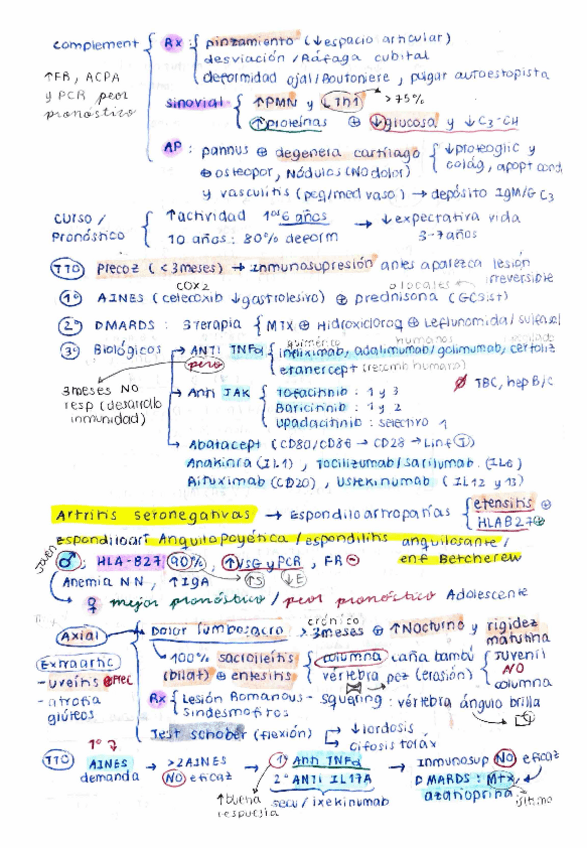 complement
Rx : pinzamiento (↓espacio articular)
desviación /Ráfaga cubital
deformidad ojal/Boutoniere, pulgar autoestopista
↑FR, ACPA
y PCR peor
pronóstico
sinovial
↑PMN y LTh1 >75%
↑proteínas ⊕ ↓glucosa y ↓C3-CH
AP : pannus ⊕ degenera cartílago
↓proteoglic y
colág, apopt cond
⊕ osteopor, Nódulos (No dolor)
y vasculitis (peq/med vaso) → depósito IgM/G C3
curso /
pronóstico
↑actividad 1os 6 años → ↓expectativa vida
10 años: 80% deform 3-7años
TTO Precoz (<3meses) → Inmunosupresión antes aparezca lesión
irreversible
COX2
o locales
1º AINES (celecoxib ↓gastrolesivo) ⊕ prednisona (GCsist)
2º DMARDS : 3terapia { MTX ⊕ Hidroxicloroq ⊕ Leflunomida/sulfasal
quimérico humanos
3º Biológicos → ANTI TNFα infliximab, adalimumab/golimumab, certoliz
pero
etanercept (recomb humano)
∅ TBC, hep B/C
3meses NO
resp (desarrollo
inmunidad)
→ Anti JAK
Tofacitinib : 1 y 3
Baricitinib : 1 y 2
Upadacitinib : selectivo 1
→ Abatacept (CD80/CD86 → CD28 → Linf T)
Anakinra (IL1), Tocilizumab/sarilumab (IL6)
Rituximab (CD20), Ustekinumab (IL12 y 13)
Artritis seronegativas → Espondiloartropatías
entesitis ⊕
HLAB27⊕
Espondiloart Anquilopoyética / espondilitis anquilosante /
enf Betcherew
Joven
♂; HLA-B27 (90%), ↑VSG y PCR, FR ⊖
Anemia NN, ↑IgA ↑S ↓E
→ ♀ mejor pronóstico / peor pronóstico Adolescente
crónico
Axial Dolor lumbosacro > 3meses ⊕ ↑Nocturno y rigidez
matutina
Extraartic
- uveítis ⊕frec
- atrofia
glúteos
100% sacroileítis
(bilat) ⊕ entesitis
columna caña bambú
vértebra pez (erosión)
Juvenil
NO
columna
Rx Lesión Romanous - squaring : vértebra ángulo brilla
sindesmofitos
Test schober (flexión)
↓lordosis
cifosis toráx
1º
TTO AINES
demanda
→ >2AINES
NO eficaz
→ 1º Anti TNFα
2º ANTI IL17A
secu / ixekinumab
↑buena
respuesta
→ Inmunosup NO eficaz
DMARDS : Mtx,
azatioprina